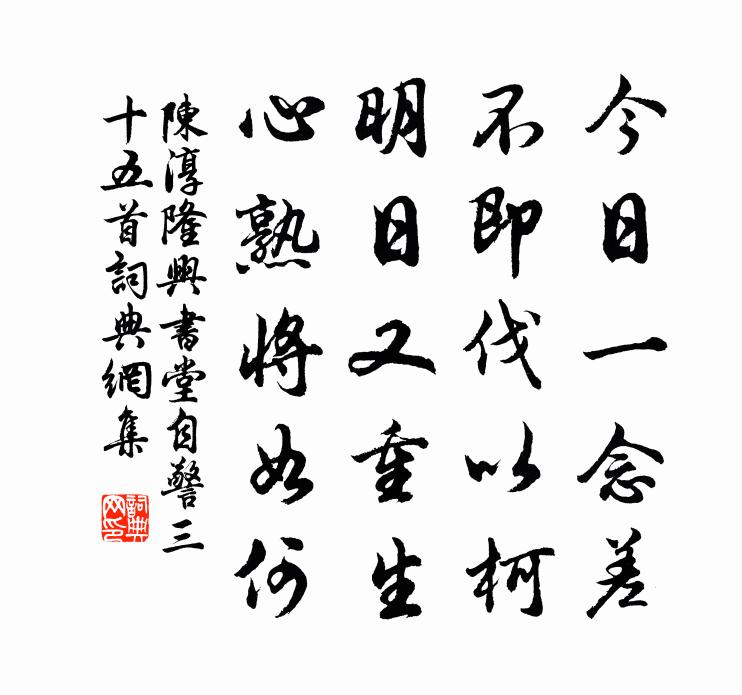 今日一念差
不即伐以柯
明日又重生
心熟將如何
陳淳隆興書堂自警三
十五首詞典網集
詞典
网印